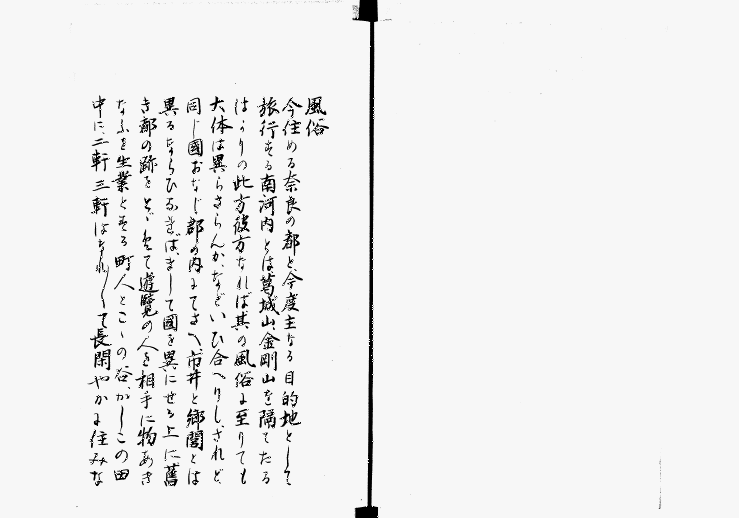 風俗
今住める奈良の都と、今度主なる目的地として
旅行する南河内とは葛城山、金剛山を隔てたる
ばかりの此方彼方なれば其の風俗に至りても
大体は異らざらんか、などいひ合へりし、されど、
同じ國おなじ郡の内にてさへ、市井と郷閭とは
異るならひなれば、まして國を異にせる上に舊
き都の跡をとゞめて遊覧の人を相手に物あき
なふを生業とする町人とこゝの谷、かしこの田
中に二軒三軒はなれ〴〵て長閑やかに住みな